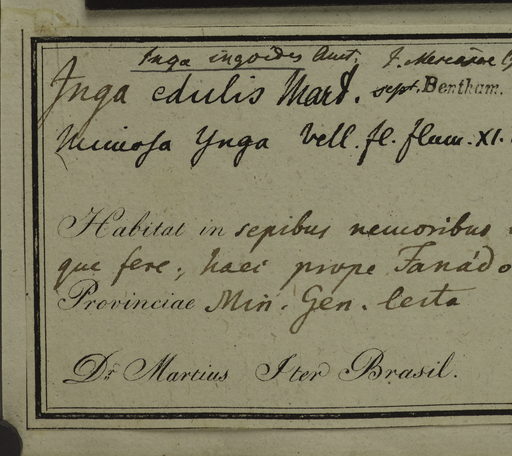 Inga ingoides Auct.
Inga edulis Mart. sept. Bentham.
Mimosa Ynga Vell. fl. flum. XI.
Habitat in sepibus nemoribus
que fere, haec prope Fanado
Provinciae Min. Gen. lecta
Dr. Martius Iter Brasil.